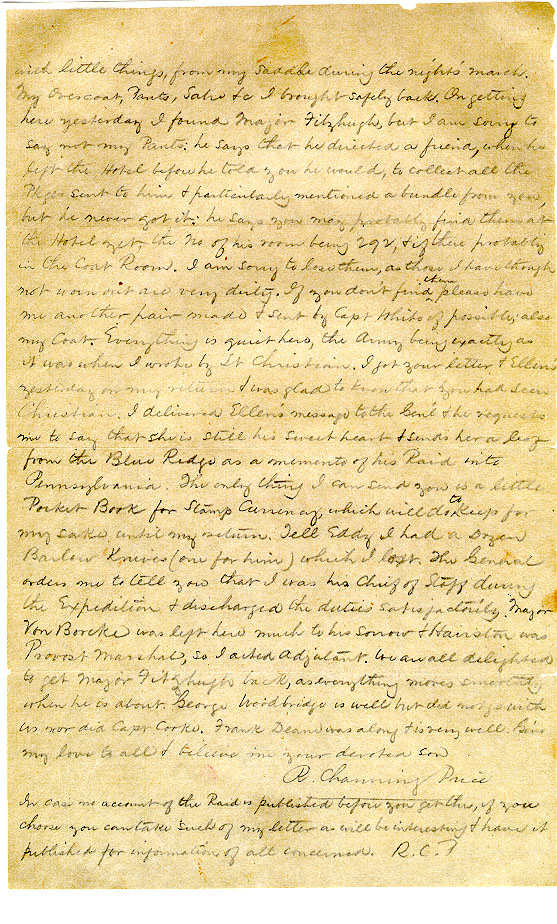 with little things, from my saddle during the night's march.
My Overcoat, Pants, Sabre &c I brought safely back. On getting
here yesterday I found Major Fitzhugh, but I am sorry to
say not my Pants: he says that he directed a friend, when he
left the Hotel before he told you he would, to collect all the
Pkges sent to him & particularly mentioned a bundle from you,
but he never got it: he says you may probably find them at
the Hotel yet, the No of his room being 292, & if there probably
in the Coat Room. I am sorry to lose them, as those I have though
not worn out are very dirty. If you don't find them please have
me another pair made & sent by Capt White if possible; also
my Coat. Everything is quiet here, the Army being exactly as
it was when I wrote by Lt Christian. I got your letter & Ellens
yesterday on my return & was glad to know that you had seen
Christian. I delivered Ellens message to the Genl & he requests
me to say that she is still his sweet heart & sends her a leaf
from the Blue Ridge as a memento of his Raid into
Pennsylvania. The only thing I can send you is a little
Pocket Book for Stamp Currency, which will do to keep for
my sake until my return. Tell Eddy I had a Dozen
Barlow Knives (one for him) which I lost. The General
orders me to tell you that I was his Chief of Staff during
the Expedition & discharged the duties satisfactorily. Major
Von Borcke was left here much to his sorrow & Hairston was
Provost Marshal, so I acted Adjutant. We are all delighted
to get Major Fitzhugh back, as everything moves smoothly
when he is about. George Woodbridge is well but did not go with
us nor did Capt Cooke. Frank Deane was along & is very well. Give
my love to all & believe me your devoted son
R. Channing Price
In case no account of the Raid is published before you get this, if you
choose you can take such of my letter as will be interesting & have it
published for information of all concerned. R. C. P